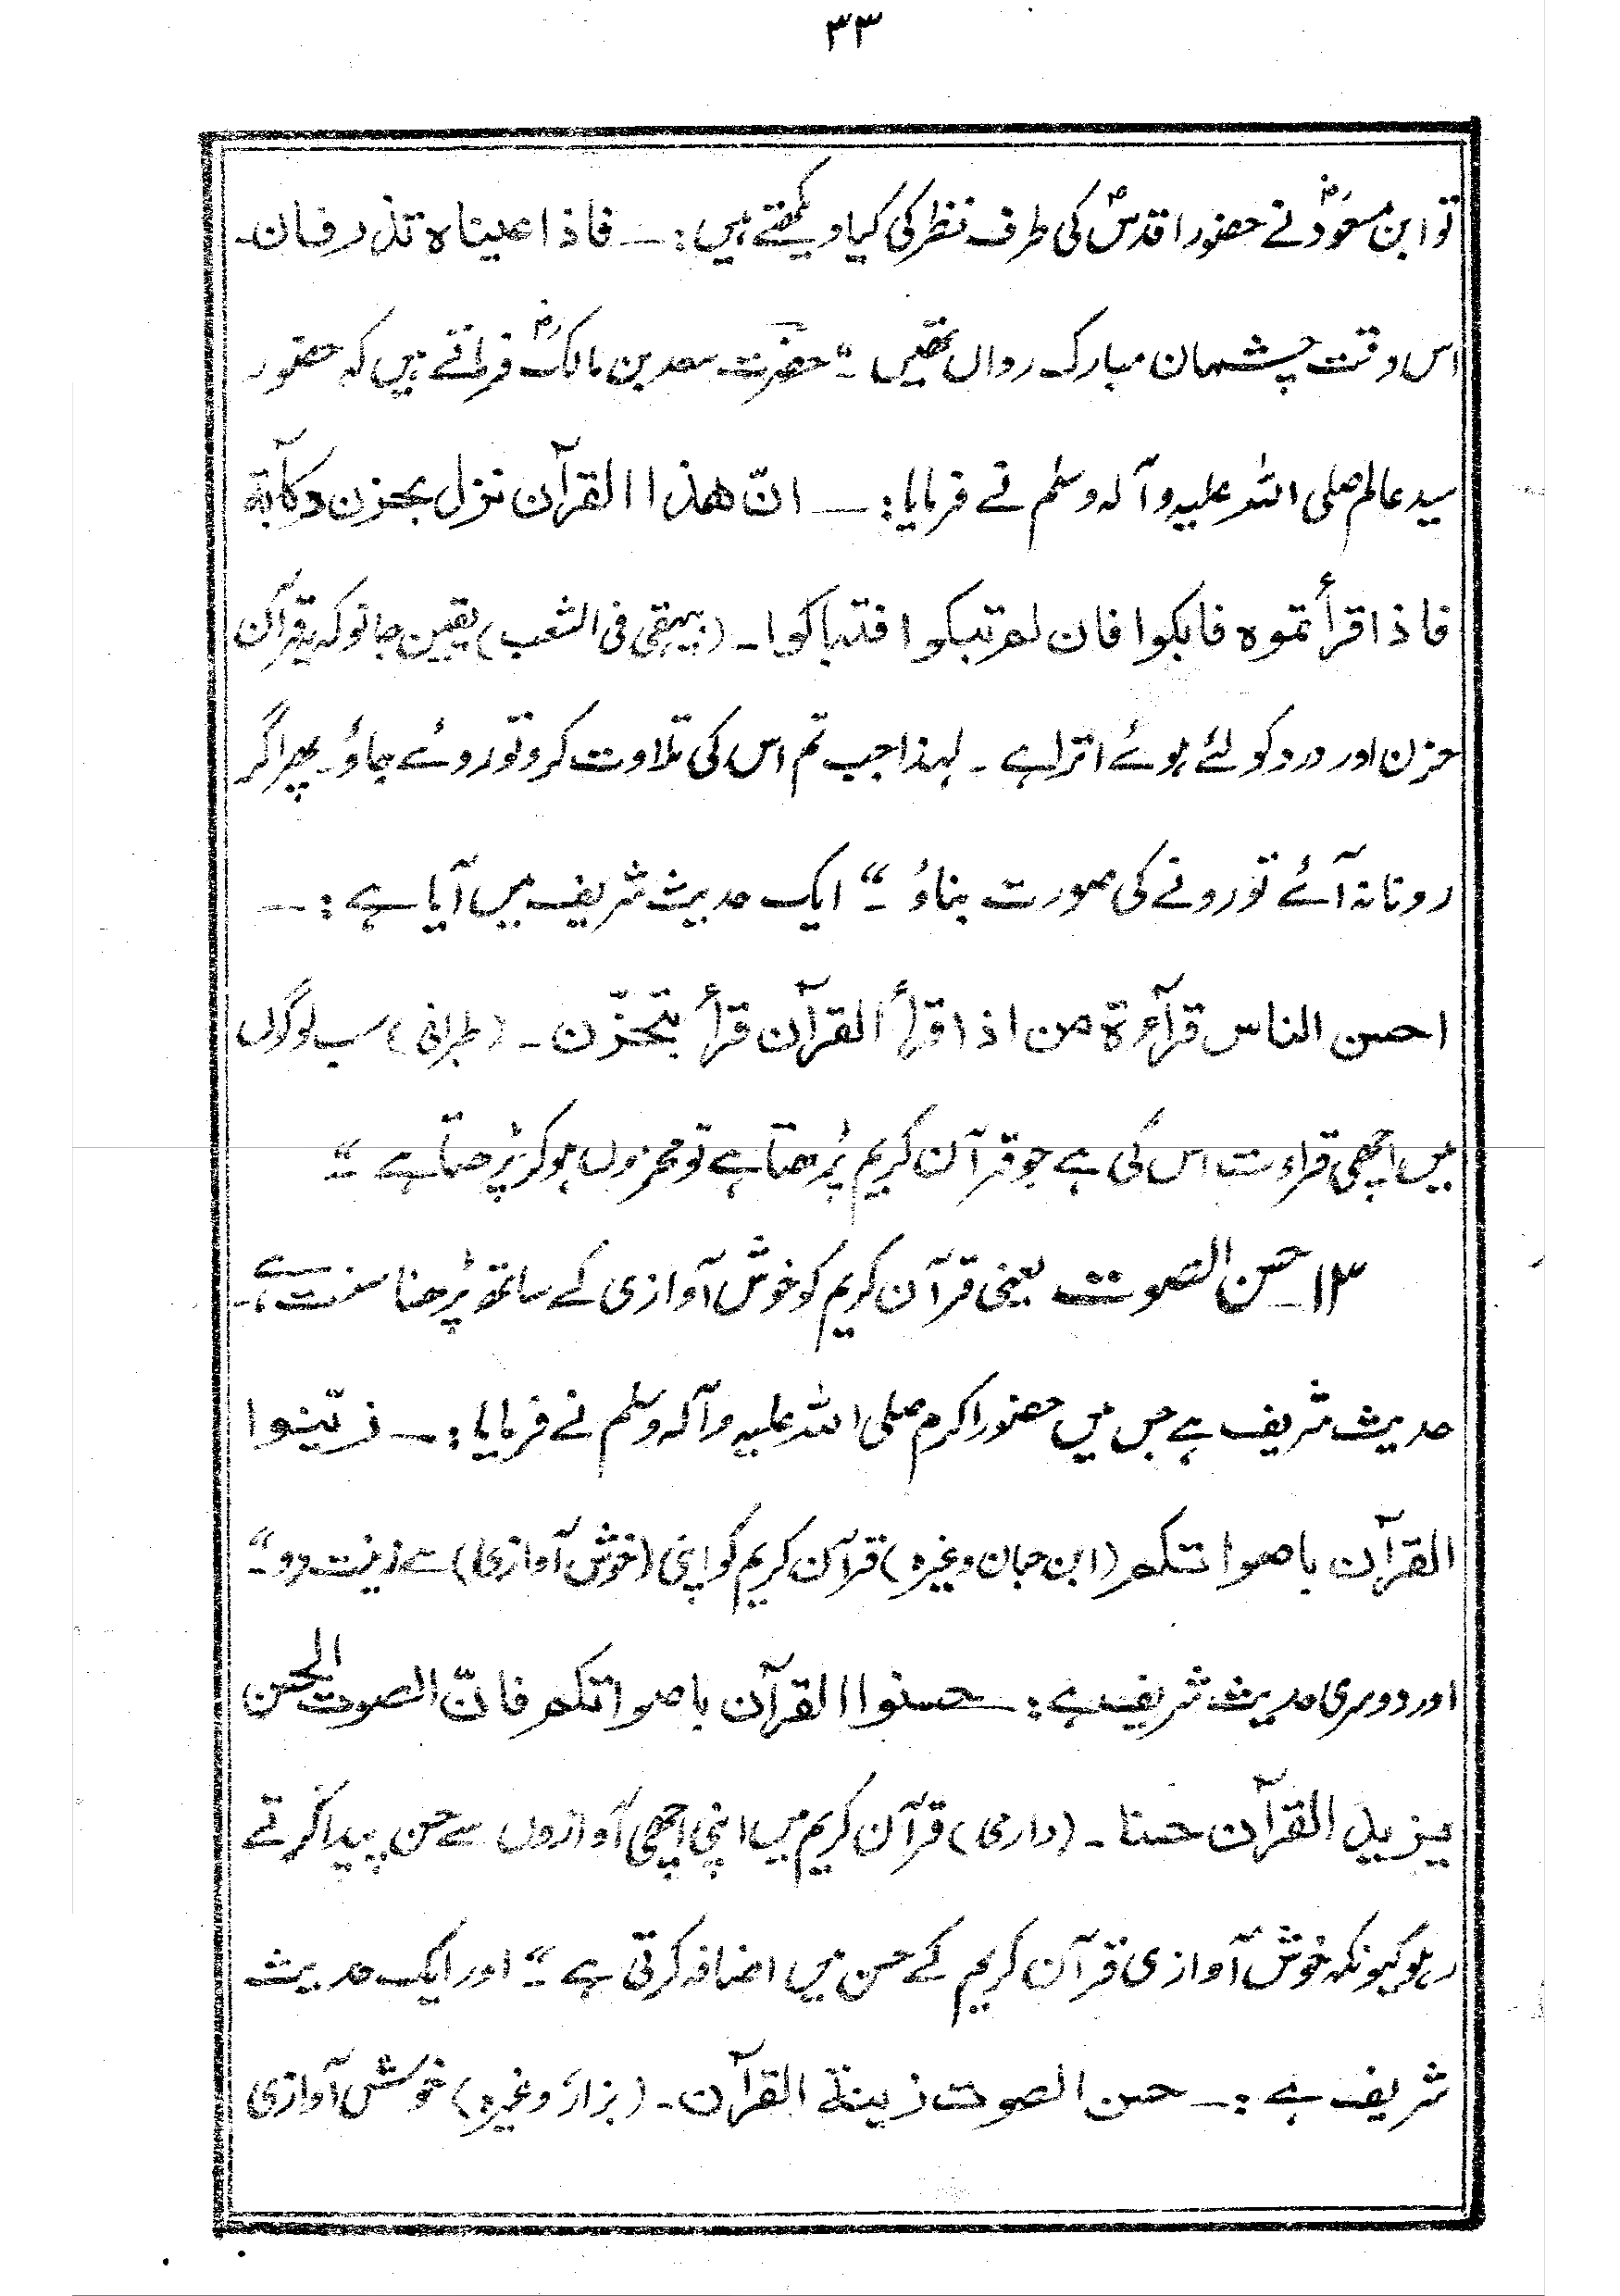 ۳۳
تو ابن مسعودؓ نے حضور اقدسؐ کی طرف نظر کی کیا دیکھتے ہیں :۔ فاذا عیناہ تذرفان۔
اس وقت چشمان مبارک رواں تھیں ۔“ حضرت سعد بن مالکؓ فرماتے ہیں کہ حضور
سید عالم صلی اللہ علیہ وآلہ وسلم نے فرمایا :۔ انّ هذا القرآن نزل بحزن وكآبة
فاذا قرأتموه فابكوا فان لم تبكوا فتباكوا ۔ (بیہقی فی الشعب) یقین جانو کہ یہ قرآن
حزن اور درد کو لئے ہوئے اترا ہے ۔ لہذا جب تم اس کی تلاوت کرو تو روئے جاؤ۔ پھر اگر
رونا نہ آئے تو رونے کی صورت بناؤ ۔“ ایک حدیث شریف میں آیا ہے :۔
احسن الناس قرآءة من اذا قرأ القرآن قرأ بتحزّن ۔ (طبرانی) سب لوگوں
میں اچھی قراءت اس کی ہے جو قرآن کریم پڑھتا ہے تو محزوں ہو کر پڑھتا ہے ۔“
۱۳ ۔ حسن الصوت یعنی قرآن کریم کو خوش آوازی کے ساتھ پڑھنا سنت ہے۔
حدیث شریف ہے جس میں حضور اکرم صلی اللہ علیہ وآلہ وسلم نے فرمایا :۔ زیّنوا
القرآن باصواتكم (ابن حبان وغیرہ) قرآن کریم کو اپنی (خوش آوازی) سے زینت دو۔“
اور دوسری حدیث شریف ہے :۔ حسنوا القرآن باصواتكم فانّ الصوت الحسن
يزيد القرآن حسنا ۔ (دارمی) قرآن کریم میں اپنی اچھی آوازوں سے حسن پیدا کرتے
رہو کیونکہ خوش آوازی قرآن کریم کے حسن میں اضافہ کرتی ہے ۔“ اور ایک حدیث
شریف ہے :۔ حسن الصوت زينة القرآن ۔ (بزار وغیرہ) خوش آوازی